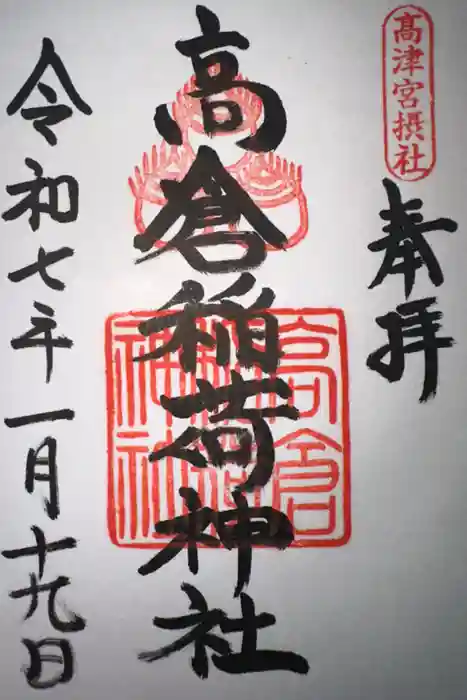 髙津宮摂社
奉拝
高倉稲荷神社
高倉
稲荷
神社
令和七年一月十九日